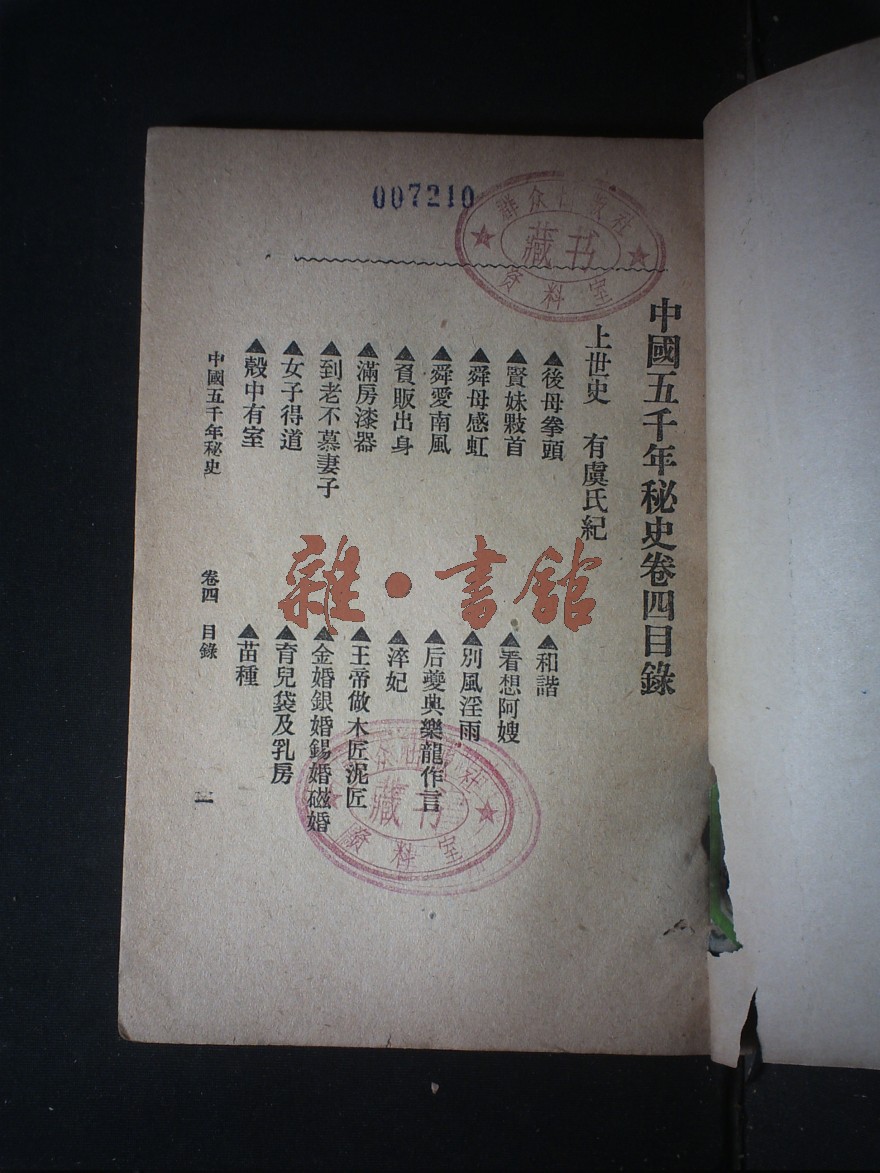 007210
群众出版社
藏书
资料室
中國五千年秘史卷四目錄
上世史 有虞氏紀
▲後母拳頭
▲和諧
▲賢妹敤首
▲看想阿嫂
▲舜母感虹
▲別風淫雨
▲舜愛南風
▲后夔典樂龍作言
▲負販出身
▲淬妃
▲滿房漆器
▲王帝做木匠泥匠
▲到老不慕妻子
▲金婚銀婚錫婚磁婚
▲女子得道
▲育兒袋及乳房
▲殼中有室
▲苗種
中國五千年秘史 卷四 目錄
雜·書舘
群众出版社
藏书
资料室